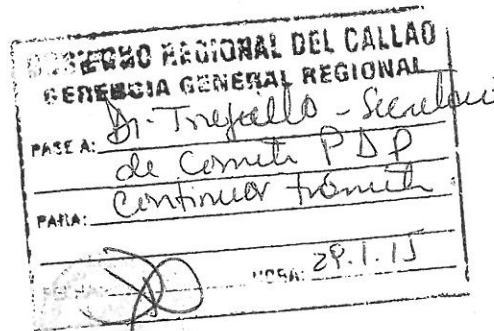 GOBIERNO REGIONAL DEL CALLAO
GERENCIA GENERAL REGIONAL
PASE A: Dr. Trejullo - Secretario
de Comité PDP
PARA: Continuar trámite
HORA: 29.1.15